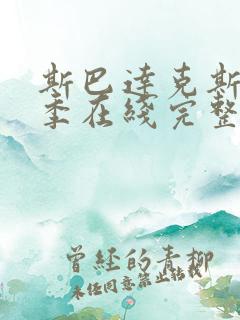 斯巴达克斯
季在线完整
曾经的青柳
未经同意禁止转载